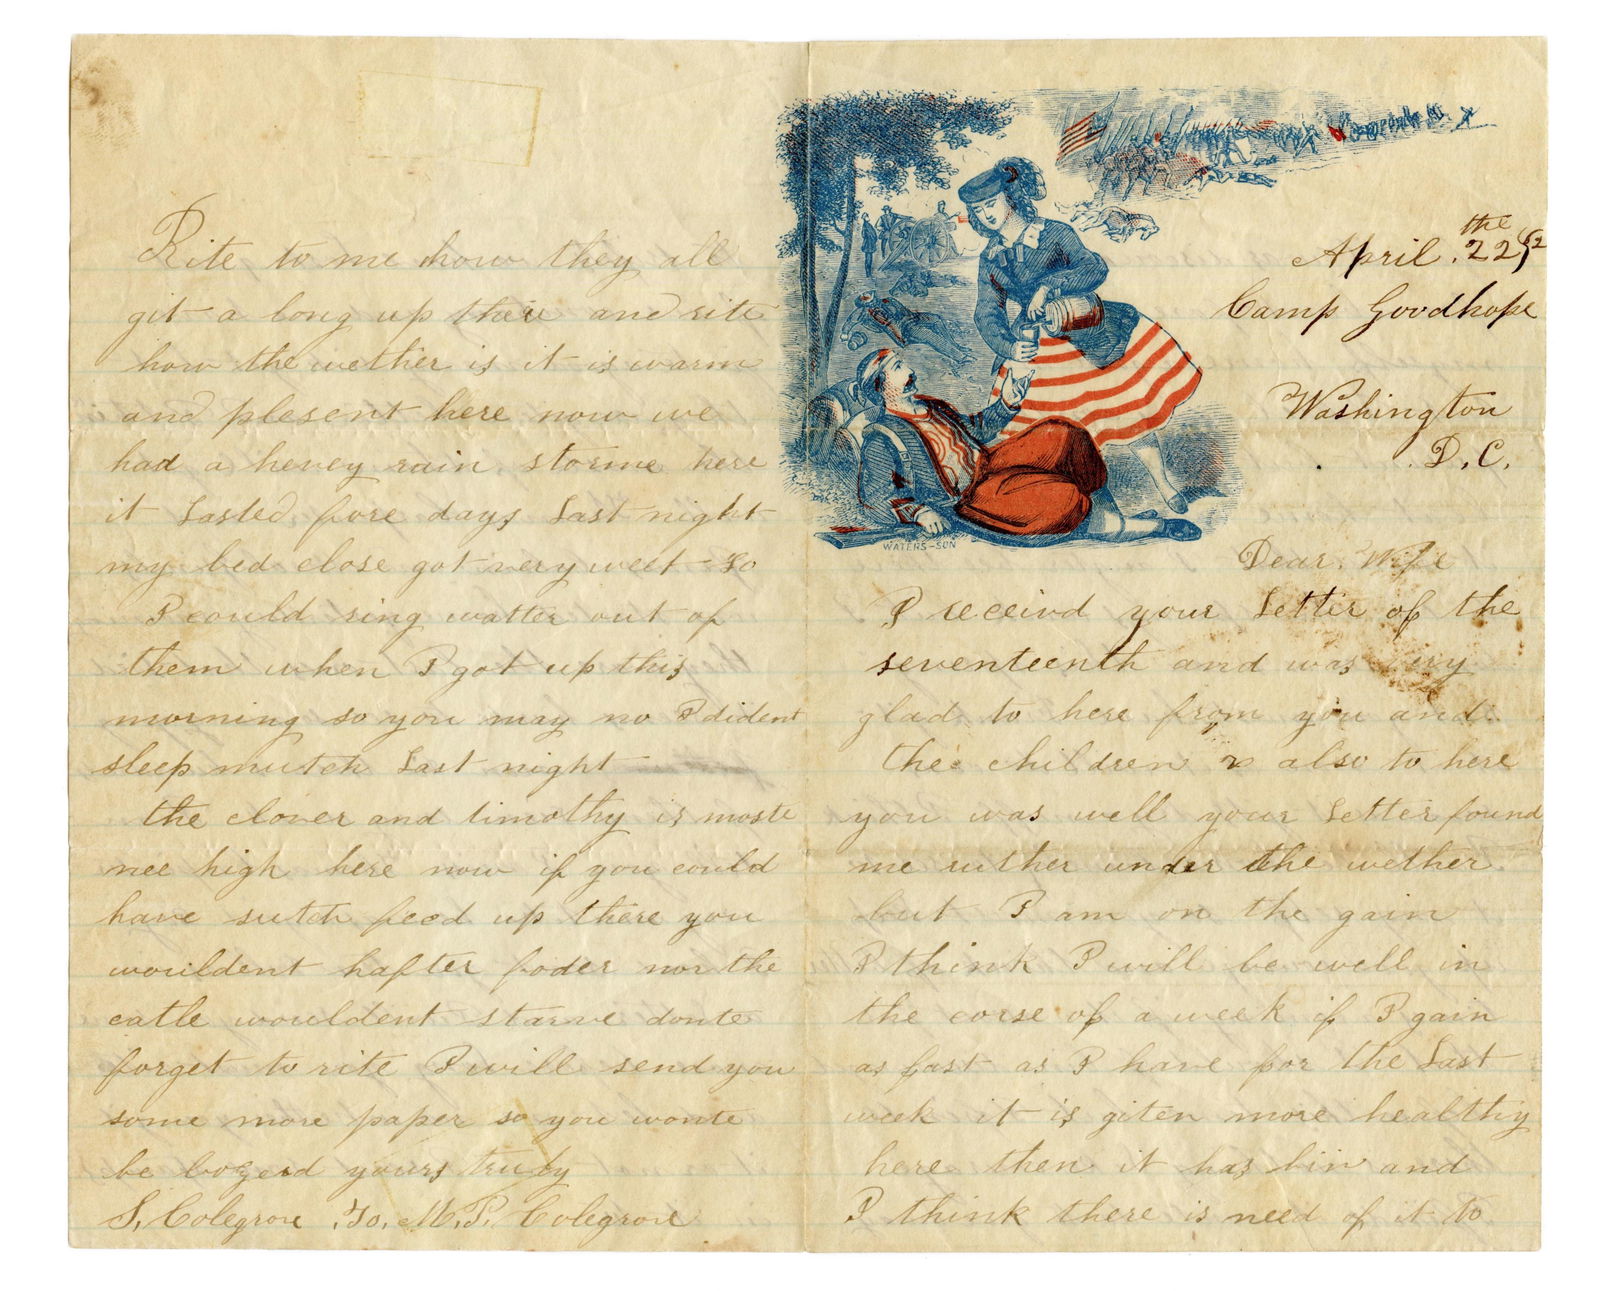 April. 22the 62
Camp Goodhope
Washington
D. C.
WATERS-SON
Dear. Wife
I receivd your Letter of the
seventeenth and was very
glad to here from you and
the children & also to here
you was well your Letter found
me ruther under the wether
but I am on the gain
I think I will be well in
the corse of a week if I gain
as fast as I have for the Last
week it is giten more healthy
here then it has bin and
I think there is need of it to
Rite to me how they all
git a long up there and rite
how the wether is it is warm
and plesent here now we
had a hevey rain storme here
it Lasted fore days Last night
my bed close got very weet so
I could ring watter out of
them when I got up this
morning so you may no I dident
sleep mutch Last night
the clover and timothy is moste
nee high here now if you could
have sutch feed up there you
wouldent hafter foder nor the
catle wouldent starve donte
forget to rite I will send you
some more paper so you wonte
be bozerd yours truly
S. Colegrove .To. M. P. Colegrove